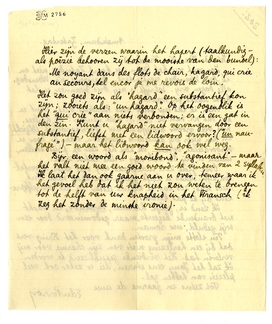 SM 2756
Hier zijn de verzen waarin het hapert (taalkundig -
als poëzie behooren zij tot de mooiste van den bundel):
Me noyant dans des flots de chair, hagard, qui crie
au secours, tel encor je me revois de loin.
Het zou goed zijn als "hagard" een substantief kon
zijn; zooiets als: "un hagard". Op het oogenblik is
het qui crie aan niets verbonden; er is een gat in
den zin. Kunt u "hagard" niet vervangen door een
substantief, liefst met een lidwoord ervoor? (un nau-
frage?) — maar het lidwoord kan ook wel weg.
Bij een woord als "moribond", "agonisant" - maar
het valt niet mee een goed woord te vinden van 2
Ik laat het dan ook gaarne aan u over, temeer waar ik
het gevoel heb dat ik het niet zou weten te brengen
tot de helft van uw knapheid in het Fransch (ik
zeg het zonder de minste ironie).